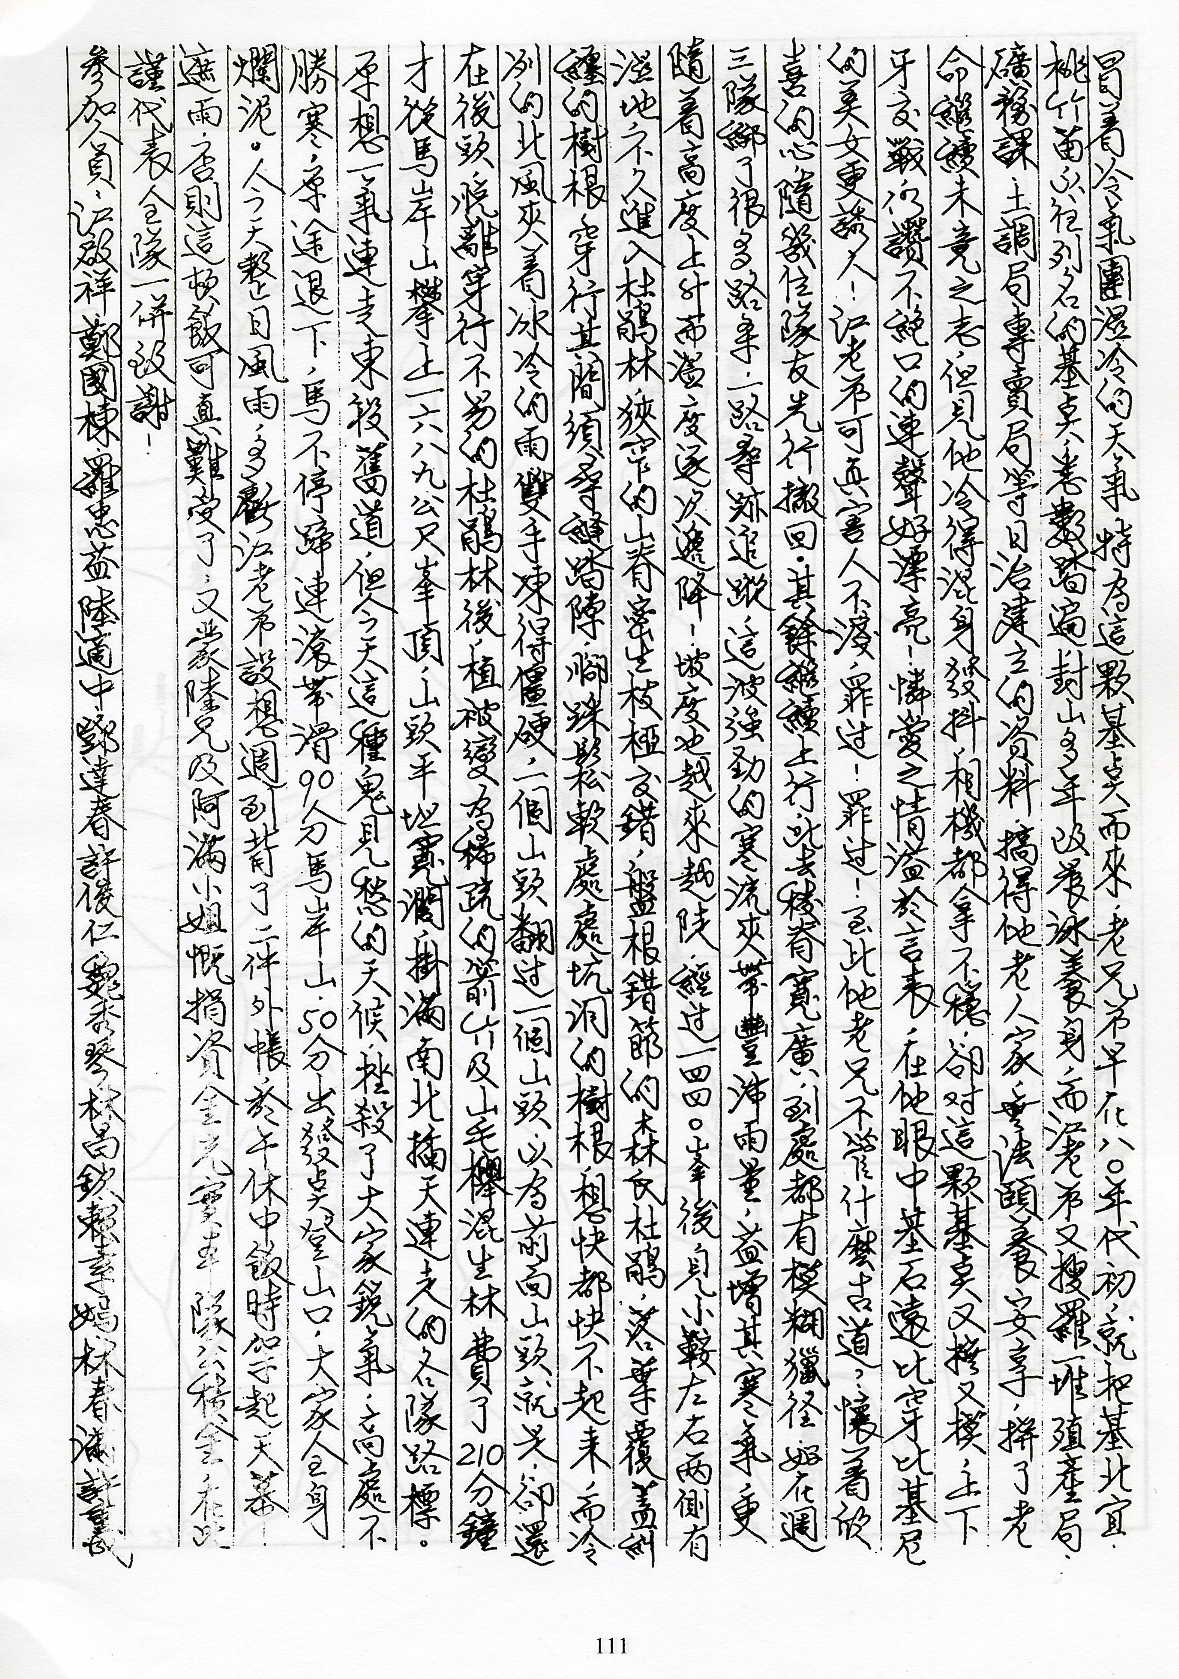 冒着冷氣團濕冷的天氣特為這顆基点而來,老兄弟早在八○年代初,就把基北宜、
桃竹苗以往列名的基点,悉數踏遍,封山多年改晨泳養身,而江老弟又搜羅一堆殖產局、
礦務課、土調局專賣局等日治建立的資料,搞得他老人家無法頤養安享,拚了老
命繼續未竟之志,但見他冷得混身發抖,相機都拿不穩,卻対這顆基点又摸又模,上下
牙交戰仍讚不絕口的連聲好漂亮!憐愛之情溢於言表,在他眼中基石遠比穿比基尼
的美女更誘人!江老弟可真害人不淺,罪过!罪过!至此他老兄不管什麼古道?懷着欣
喜的心,隨幾位隊友先行撤回。其餘繼續上行,此去稜脊寬廣,到處都有模糊獵径,好在週
三隊綁了很多路条,一路尋跡追蹤,這波強勁的寒流夾帶豐沛雨量,益增其寒氣,更
隨着高度上升而溫度逐次遞降!坡度也越來越陡,經过一四四○峯後見小鞍左右兩側有
溼地,不久進入杜鵑林,狹窄的山脊密生枝極交錯,盤根錯節的森氏杜鵑,落葉覆蓋糾
纏的樹根,穿行其間須尋徑踏陣,腳踩鬆軟處處坑洞的樹根想快都快不起来,而冷
冽的北風夾着冰冷的雨雙手凍得僵硬,一個山頭翻过一個山頭,以為前面山頭就是,卻還
在後頭,脫離穿行不易的杜鵑林後,植被變為稀疏的箭竹及山毛櫸混生林,費了210分鐘
才從馬岸山攀上一六八九公尺峯頂,山頭平坦寬濶,掛滿南北插天連走的各隊路標。
原想一氣連走東段舊道,但今天這種鬼見愁的天候,挫殺了大家銳氣,高處不
勝寒,原途退下,馬不停蹄連滾带滑90分馬岸山、50分出發点登山口,大家全身
爛泥。今天整日風雨,多虧江老弟設想週到背了二件外帳,於午休中飯時加予起天幕
遮雨,否則這杨飯可真難受了,又蒙陸兄及阿滿小姐慨捐資金充實本隊公積金,在此
謹代表全隊一併致謝!
參加人員:江啟祥 鄭國棟 羅忠益 陸適中 鄧達春 許俊仁 魏秀琴 林昌欽 賴素嫣 林春滿 許義
111